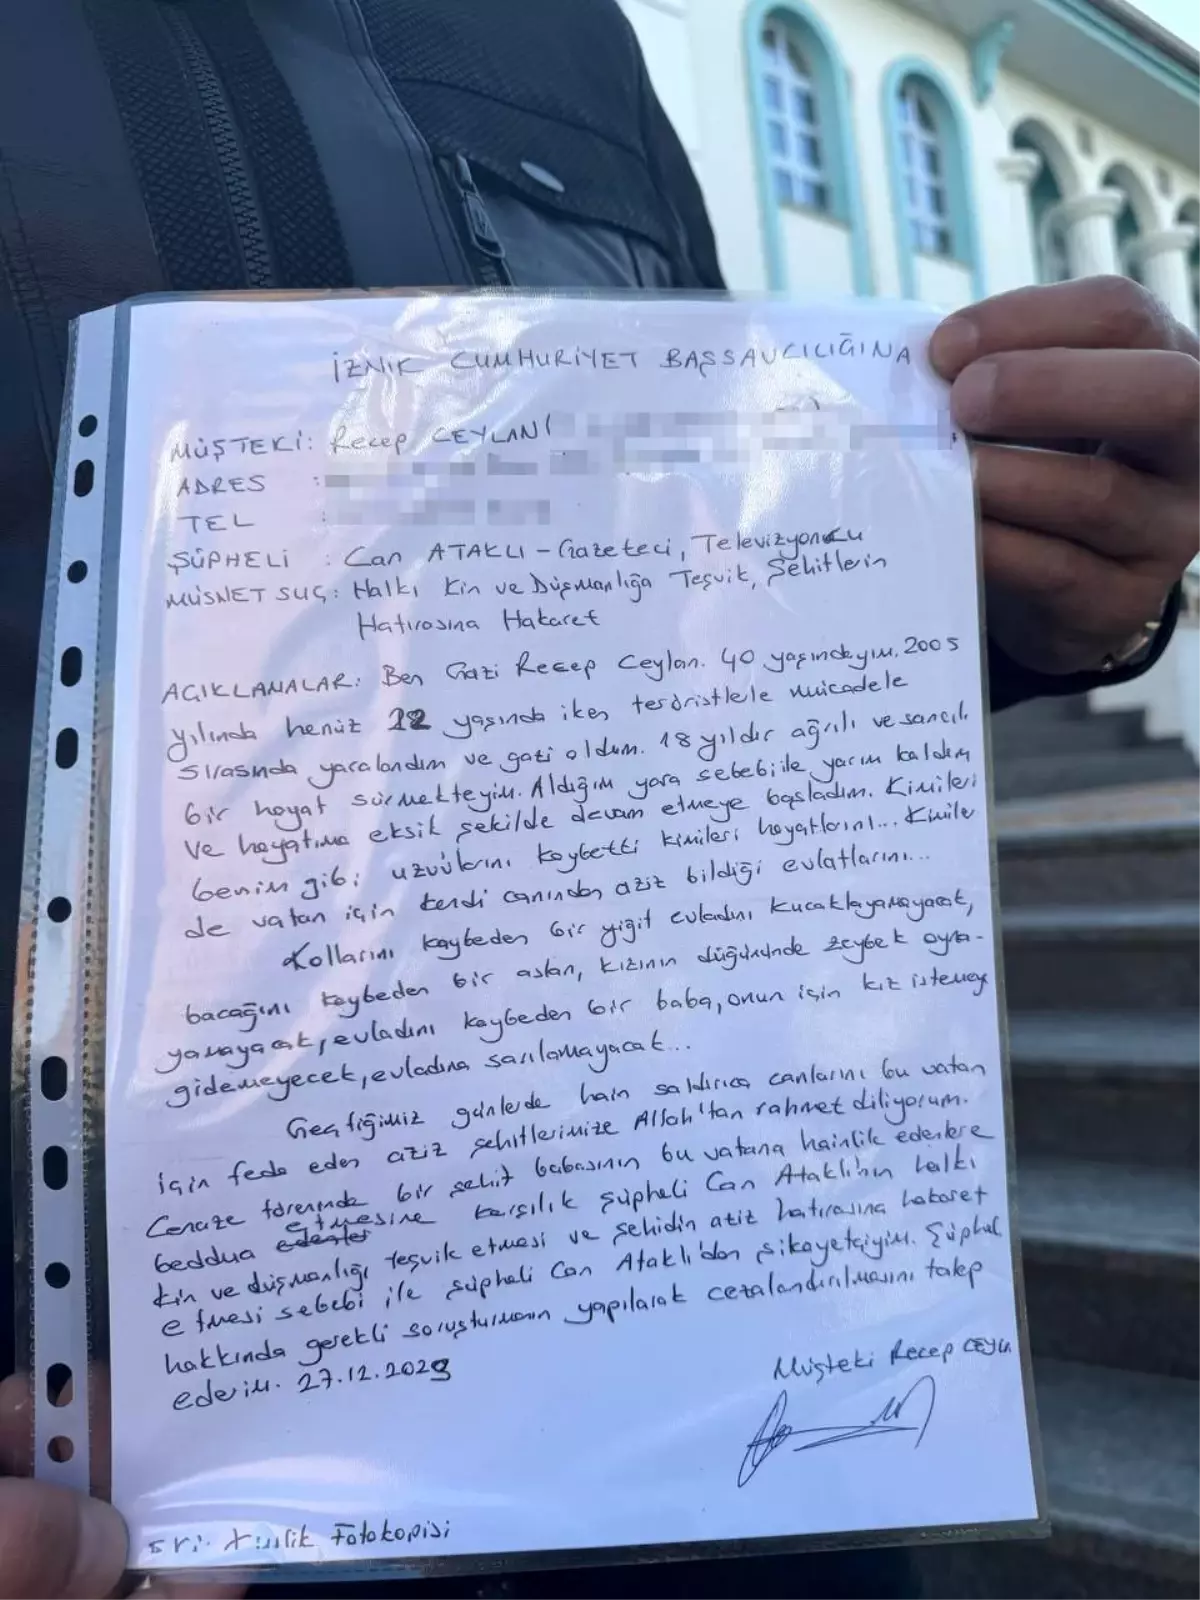 İZNİK CUMHURİYET BAŞSAVCILIĞINA
MÜŞTEKİ: Recep CEYLAN(
ADRES :
TEL :
ŞÜPHELİ : Can ATAKLI - Gazeteci, Televizyoncu
MÜSNET SUÇ: Halkı Kin ve Düşmanlığa Teşvik, Şehitlerin
Hatırasına Hakaret
AÇIKLAMALAR: Ben Gazi Recep Ceylan. 40 yaşındayım. 2005
yılında henüz 22 yaşında iken teröristlele mücadele
sırasında yaralandım ve gazi oldum. 18 yıldır ağrılı ve sancılı
bir hayat sürmekteyim. Aldığım yara sebebiile yarım kaldım
ve hayatıma eksik şekilde devam etmeye başladım. Kimileri
benim gibi uzuvlarını kaybetti kimileri hayatlarını... Kimile
de vatan için kendi canından aziz bildiği evlatlarını...
Kollarını kaybeden bir yiğit evladını kucaklayamayacak,
bacağını kaybeden bir aslan, kızının düğününde zeybek oyna-
yamayacak, evladını kaybeden bir baba, onun için kız istemey
gidemeyecek, evladına sarılamayacak...
Geçtiğimiz günlerde hain saldırıca canlarını bu vatan
için feda eden aziz şehitlerimize Allah'tan rahmet diliyorum.
Cenaze töreninde bir şehit babasının bu vatana hainlik edenlere
beddua etmesine karşılık şüpheli Can Ataklı'nın halkı
kin ve düşmanlığı teşvik etmesi ve şehidin aziz hatırasına hakaret
etmesi sebebi ile şüpheli Can Ataklı'dan şikayetçiyim. Şüpheli
hakkında gerekli soruşturmanın yapılarak cezalandırılmasını talep
ederim. 27.12.2023
Müşteki Recep CEYLA
Fotokopisi